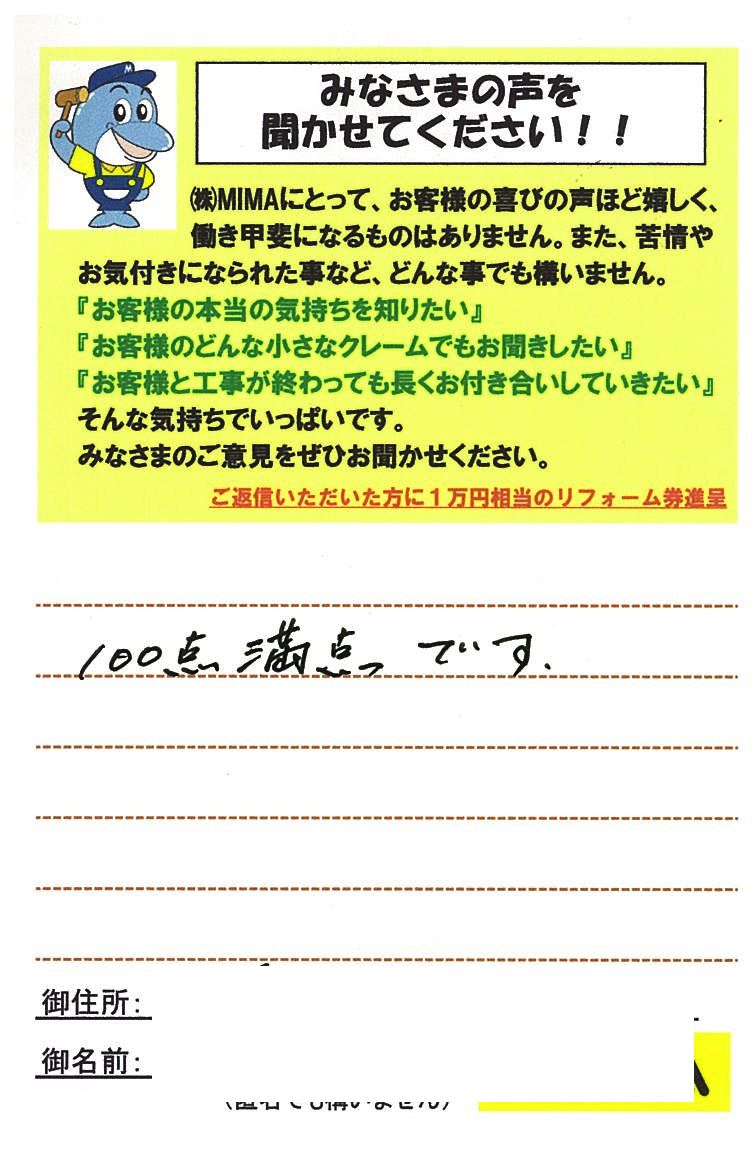 M
みなさまの声を
聞かせてください！！
㈱MIMAにとって、お客様の喜びの声ほど嬉しく、
働き甲斐になるものはありません。また、苦情や
お気付きになられた事など、どんな事でも構いません。
『お客様の本当の気持ちを知りたい』
『お客様のどんな小さなクレームでもお聞きしたい』
『お客様と工事が終わっても長くお付き合いしていきたい』
そんな気持ちでいっぱいです。
みなさまのご意見をぜひお聞かせください。
ご返信いただいた方に１万円相当のリフォーム券進呈
100点満点っです.
御住所：
御名前：
（匿名でも構いません）